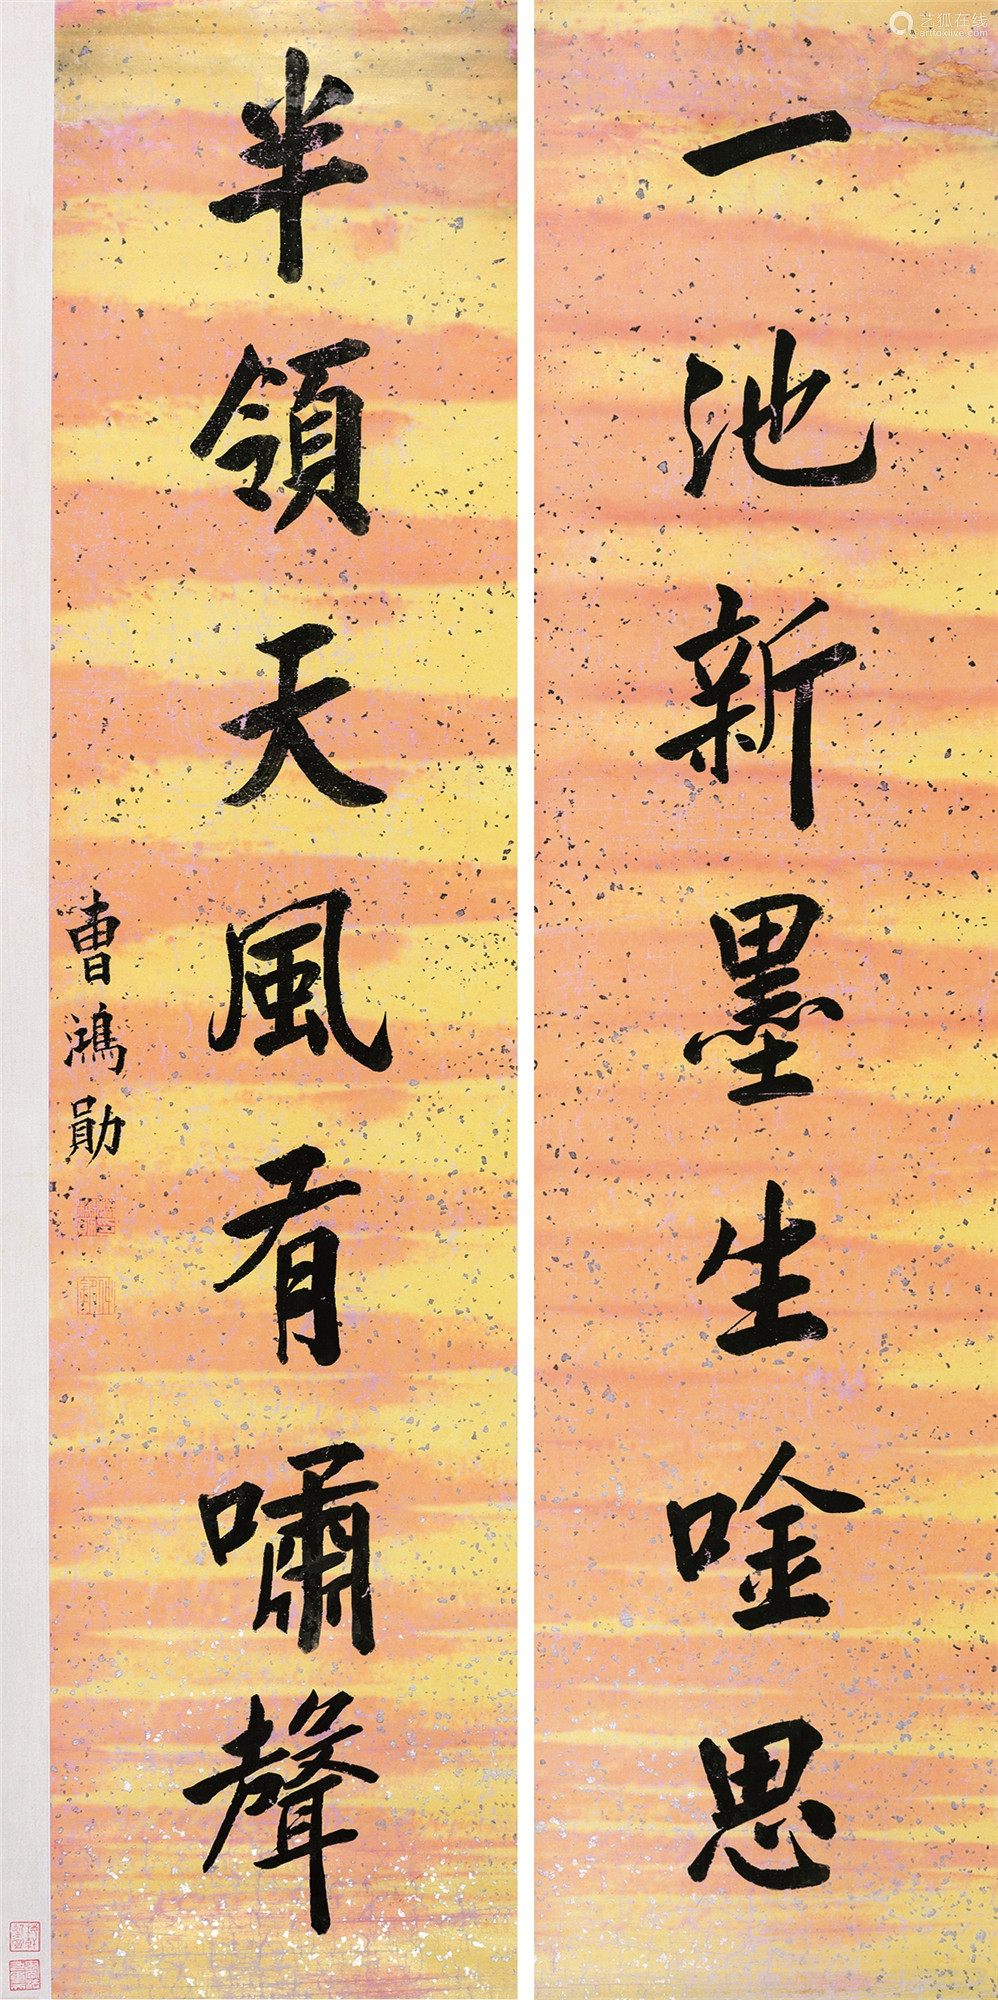 一池新墨生唫思
半領天風有嘯聲
曹鴻勛
艺狐在线
artfoxlive.com